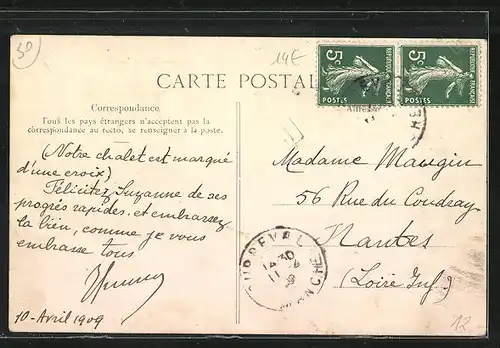 30
14E
5c
5c
POSTES
POSTES
REPUBLIQUE FRANÇAISE
REPUBLIQUE FRANÇAISE
CARTE POSTALE
Correspondance
Tous les pays étrangers n'acceptent pas la
correspondance au recto, se renseigner à la poste.
(Notre chalet est marqué
d'une croix)
Félicitez Suzanne de ses
progrès rapides, et embrassez
la bien, comme je vous
embrasse tous
10 - Avril 1909
Madame Maugin
56 Rue du Coudray
Nantes
(Loire Inf.)
MANCHE
12